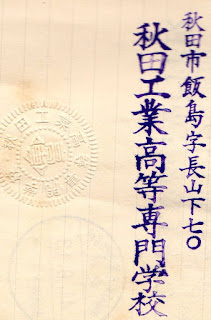 秋田市飯島字長山下七〇
秋田工業高等専門学校